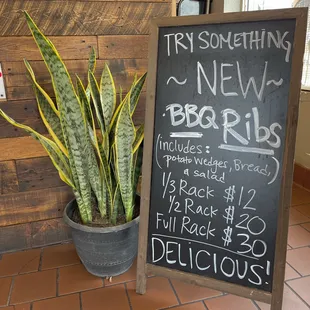 TRY SOMETHING
~ NEW ~
BBQ Ribs
(includes:
potato Wedges, Bread,
& salad)
1/3 Rack $12
1/2 Rack $20
Full Rack $30
DELICIOUS!